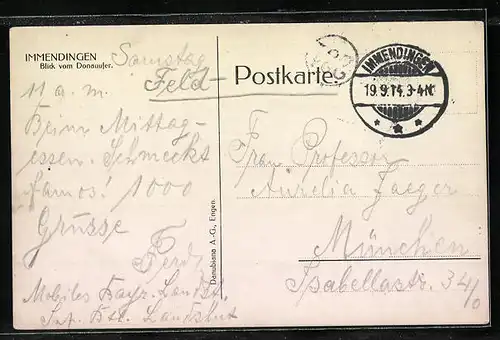 IMMENDINGEN
Blick vom Donauufer.
Samstag
11 a. m.
Beim Mittag-
essen. Schmeckt
famos! 1000
Grüsse
Ferd
Mobiles Bayr. Landst.
Inf. Btl. Landshut
Danubiana A.-G., Engen.
Feld-Postkarte
IMMENDINGEN
19.9.14. 3-4N.
Frau Professor
Aurelia Jaeger
München
Isabellastr. 34/0